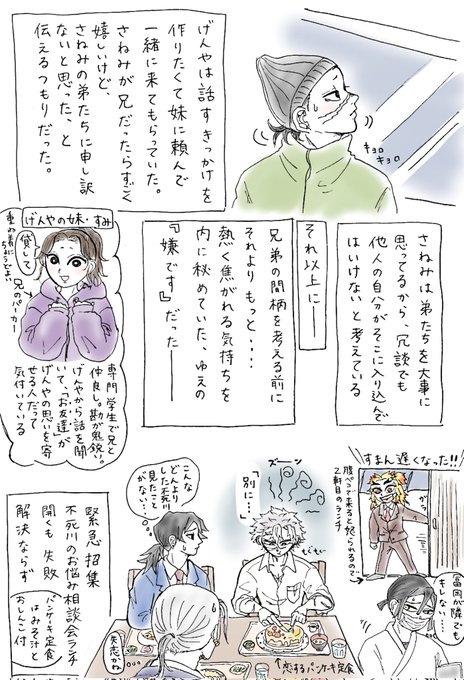 げんやは話すきっかけを
作りたくて妹に頼んで
一緒に来てもらっていた。
さねみが兄だったらすごく
嬉しいけど、
さねみの弟たちに申し訳
ないと思った、と
伝えるつもりだった。
キョロ
キョロ
さねみは弟たちを大事に
思ってるから、冗談でも
他人の自分がそこに入り込んで
はいけないと考えている
それ以上に―
兄弟の間柄を考える前に
それよりもっと・・・
熱く焦がれる気持ちを
内に秘めていた、ゆえの
『嫌です』だった―
げんやの妹・すみ
貸して
兄のパーカー
専門学生で兄と
仲良し。勘が鬼鋭い。
げんやから話を聞
いて、「お友達」が
げんやの思いを寄
せる人だって
気付いている
すまん遅くなった!!
ガラッ
腹ペコで来ると怒られるので
2軒目のランチ
冨岡が隣でも
キレない…。
ズーン
「別に…」
こんな
どんより
した不死川
見たこと
がない…
もぐもぐ
失恋かね
↑恋するパンケーキ定食
緊急招集
不死川のお悩み相談会ランチ
開くも失敗
解決ならず
パンケーキ定食
はみそ汁と
おしんこ付